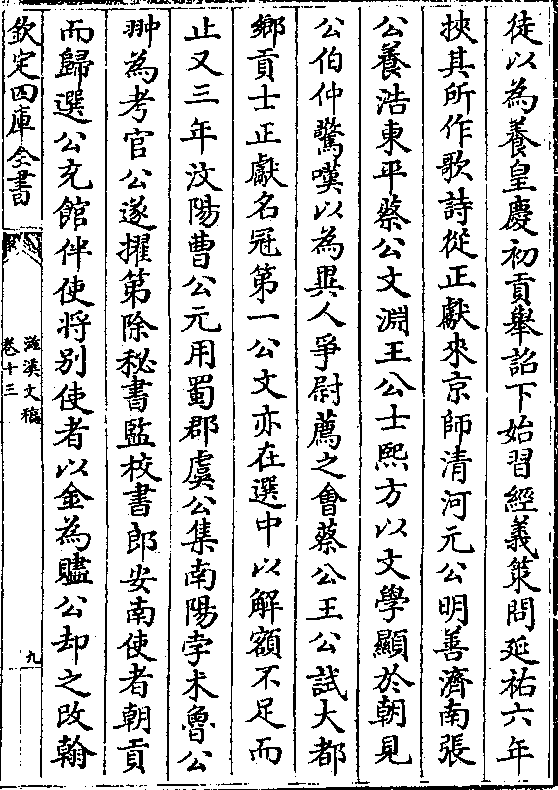 徒以為養皇慶初貢舉詔下始習經義策問延祐六年
挾其所作歌詩從正獻來京師清河元公明善濟南張
公養浩東平蔡公文淵王公士熙方以文學顯於朝見
公伯仲驚嘆以為異人爭尉薦之會蔡公王公試大都
鄉貢士正獻名冠第一公文亦在選中以解額不足而
止又三年汶陽曹公元用蜀郡虞公集南陽孛朮魯公
翀為考官公遂擢第除秘書監校書郎安南使者朝貢
而歸選公充館伴使將別使者以金為贐公却之改翰
欽定四庫全書
滋溪文稿
卷十三
九